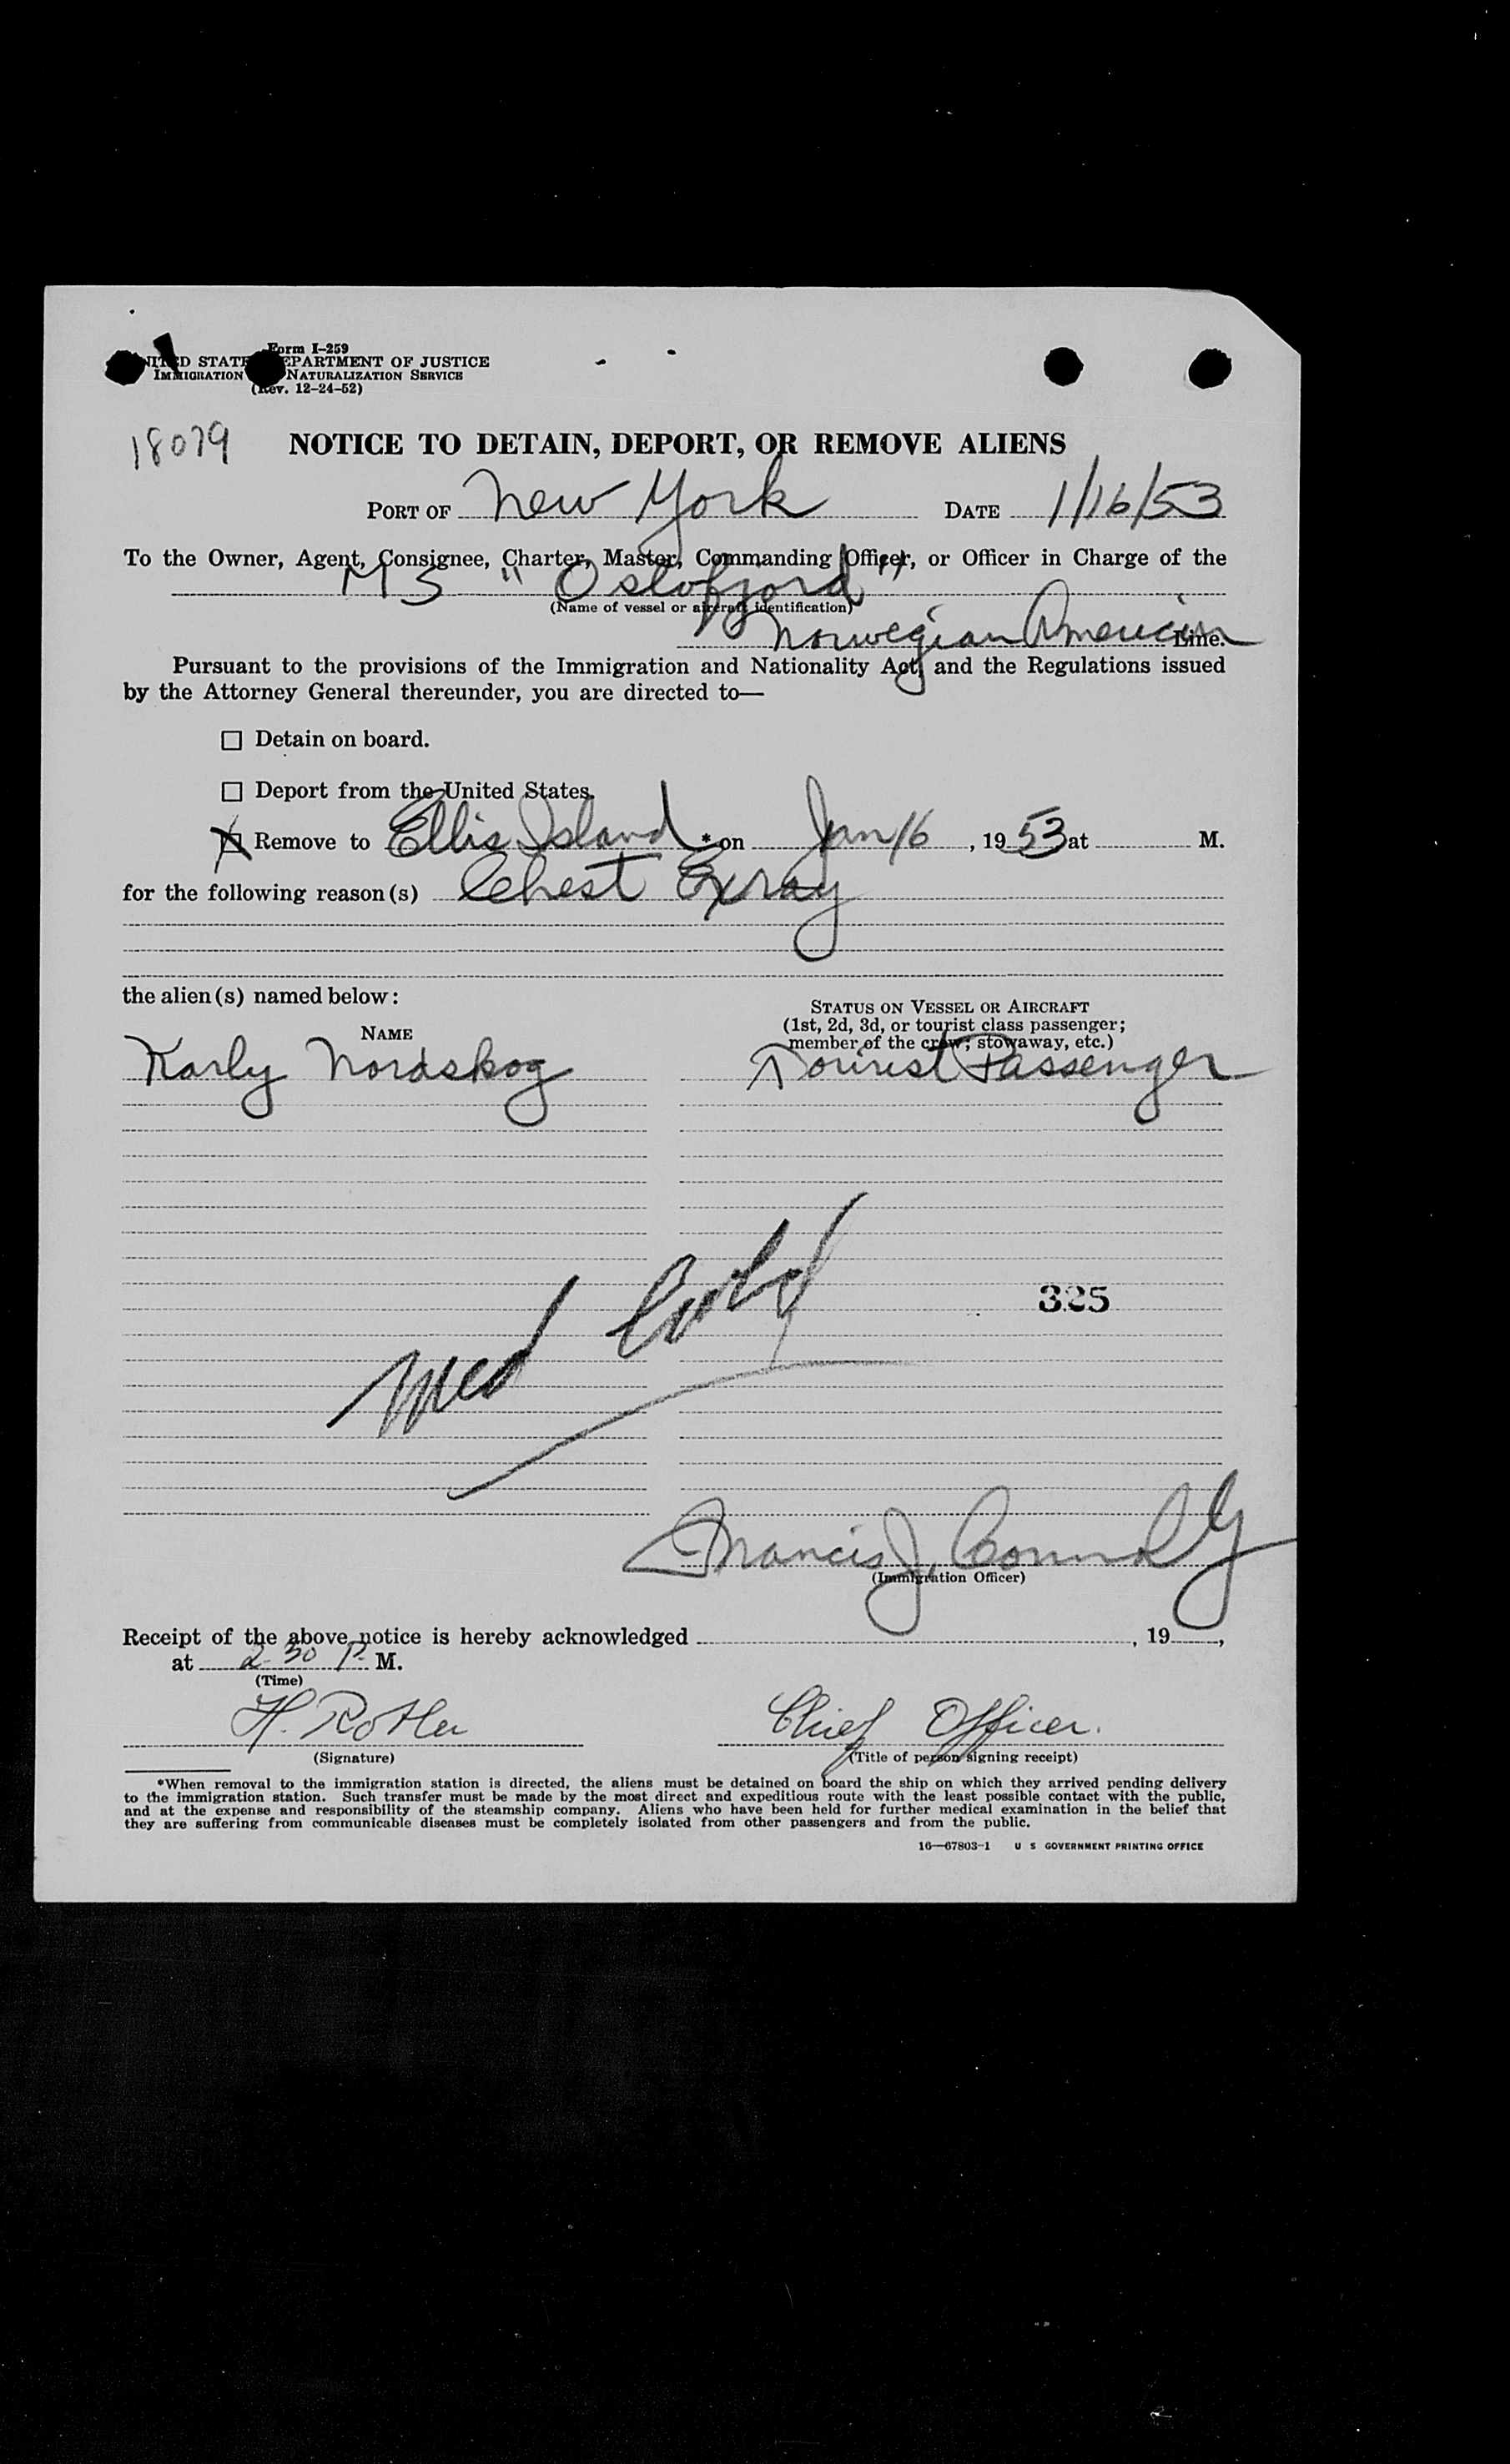 Form I-259
UNITED STATES DEPARTMENT OF JUSTICE
IMMIGRATION NATURALIZATION SERVICE
(Rev. 12-24-52)
18079
NOTICE TO DETAIN, DEPORT, OR REMOVE ALIENS
PORT OF New York DATE 1/16/53
To the Owner, Agent, Consignee, Charter, Master, Commanding Officer, or Officer in Charge of the
MS "Oslofjord"
(Name of vessel or aircraft identification)
Norwegian American Line.
Pursuant to the provisions of the Immigration and Nationality Act, and the Regulations issued
by the Attorney General thereunder, you are directed to—
☐ Detain on board.
☐ Deport from the United States.
☒ Remove to Ellis Island *on Jan 16, 1953 at M.
for the following reason(s) Chest Exray
the alien(s) named below:
NAME
STATUS ON VESSEL OR AIRCRAFT
(1st, 2d, 3d, or tourist class passenger;
member of the crew; stowaway, etc.)
Karly Nordskog Tourist Passenger
325
Med
Francis J. Connolly
(Immigration Officer)
Receipt of the above notice is hereby acknowledged , 19 ,
at 2-30 P. M.
(Time)
H. Chief Officer.
(Signature) (Title of person signing receipt)
*When removal to the immigration station is directed, the aliens must be detained on board the ship on which they arrived pending delivery
to the immigration station. Such transfer must be made by the most direct and expeditious route with the least possible contact with the public,
and at the expense and responsibility of the steamship company. Aliens who have been held for further medical examination in the belief that
they are suffering from communicable diseases must be completely isolated from other passengers and from the public.
16—67803-1 U S GOVERNMENT PRINTING OFFICE